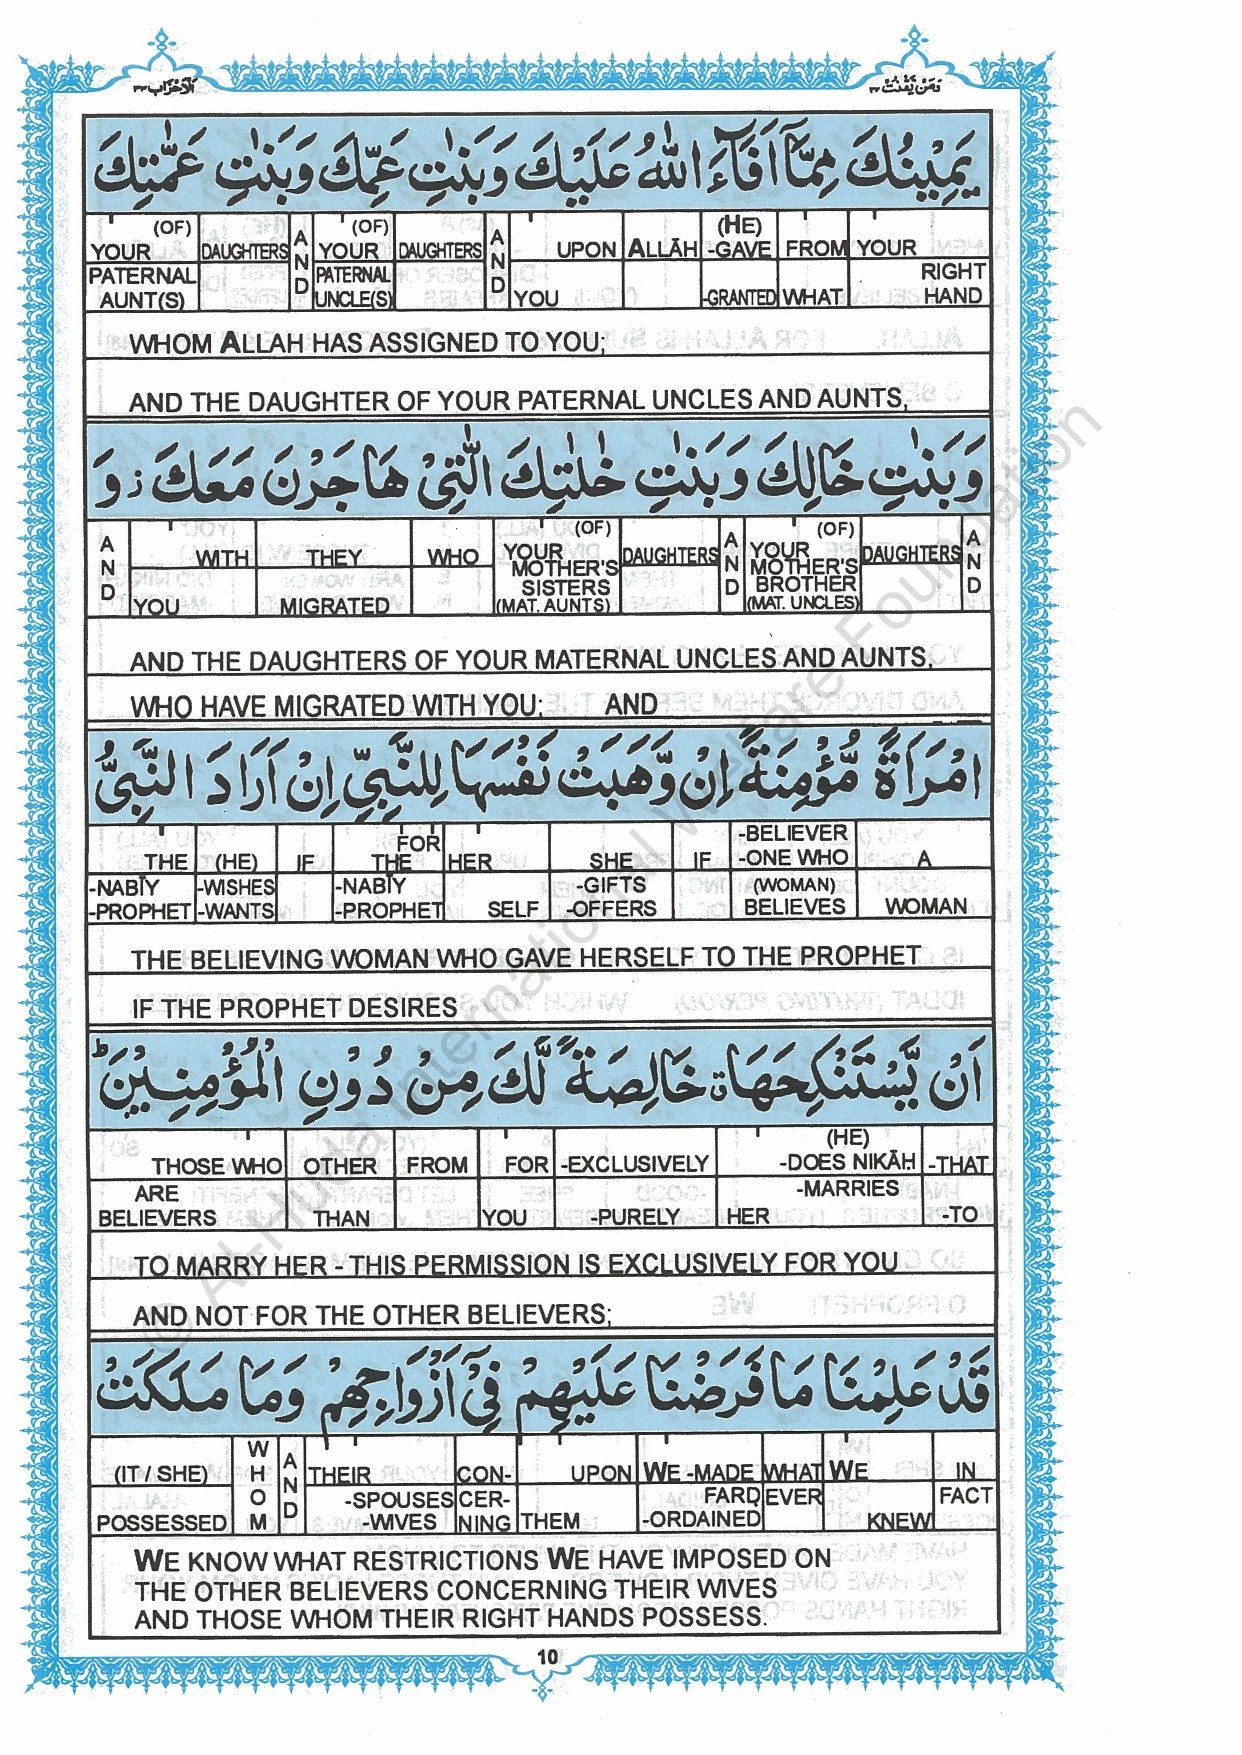 الاحزاب ٣٣
ومن یقنت ٢٢
یَمِیْنُكَ مِمَّاۤ اَفَآءَ اللّٰهُ عَلَیْكَ وَ بَنٰتِ عَمِّكَ وَ بَنٰتِ عَمّٰتِكَ
(OF) YOUR PATERNAL AUNT(S) | DAUGHTERS | AND | (OF) YOUR PATERNAL UNCLE(S) | DAUGHTERS | AND | UPON YOU | ALLĀH | (HE) -GAVE -GRANTED | FROM WHAT | YOUR RIGHT HAND
WHOM ALLAH HAS ASSIGNED TO YOU;
AND THE DAUGHTER OF YOUR PATERNAL UNCLES AND AUNTS,
وَ بَنٰتِ خَالِكَ وَ بَنٰتِ خٰلٰتِكَ الّٰتِیْ هَاجَرْنَ مَعَكَ ؗ وَ
AND | WITH YOU | THEY MIGRATED | WHO | (OF) YOUR MOTHER'S SISTERS (MAT. AUNTS) | DAUGHTERS | AND | (OF) YOUR MOTHER'S BROTHER (MAT. UNCLES) | DAUGHTERS | AND
AND THE DAUGHTERS OF YOUR MATERNAL UNCLES AND AUNTS,
WHO HAVE MIGRATED WITH YOU; AND
امْرَاَةً مُّؤْمِنَةً اِنْ وَّهَبَتْ نَفْسَهَا لِلنَّبِیِّ اِنْ اَرَادَ النَّبِیُّ
THE -NABĪY -PROPHET | (HE) -WISHES -WANTS | IF | FOR THE -NABĪY -PROPHET | HER SELF | SHE -GIFTS -OFFERS | IF | -BELIEVER -ONE WHO (WOMAN) BELIEVES | A WOMAN
THE BELIEVING WOMAN WHO GAVE HERSELF TO THE PROPHET
IF THE PROPHET DESIRES
اَنْ یَّسْتَنْكِحَهَا ۗ خَالِصَةً لَّكَ مِنْ دُوْنِ الْمُؤْمِنِیْنَ ؕ
THOSE WHO ARE BELIEVERS | OTHER THAN | FROM | FOR YOU | -EXCLUSIVELY -PURELY | (HE) -DOES NIKĀḤ -MARRIES HER | -THAT -TO
TO MARRY HER - THIS PERMISSION IS EXCLUSIVELY FOR YOU
AND NOT FOR THE OTHER BELIEVERS;
قَدْ عَلِمْنَا مَا فَرَضْنَا عَلَیْهِمْ فِیْۤ اَزْوَاجِهِمْ وَ مَا مَلَكَتْ
(IT / SHE) POSSESSED | WHOM | AND | THEIR -SPOUSES -WIVES | CON-CER-NING | UPON THEM | WE -MADE FARḌ -ORDAINED | WHAT EVER | WE KNEW | IN FACT
WE KNOW WHAT RESTRICTIONS WE HAVE IMPOSED ON
THE OTHER BELIEVERS CONCERNING THEIR WIVES
AND THOSE WHOM THEIR RIGHT HANDS POSSESS.
10
© Al-Huda International Welfare Foundation